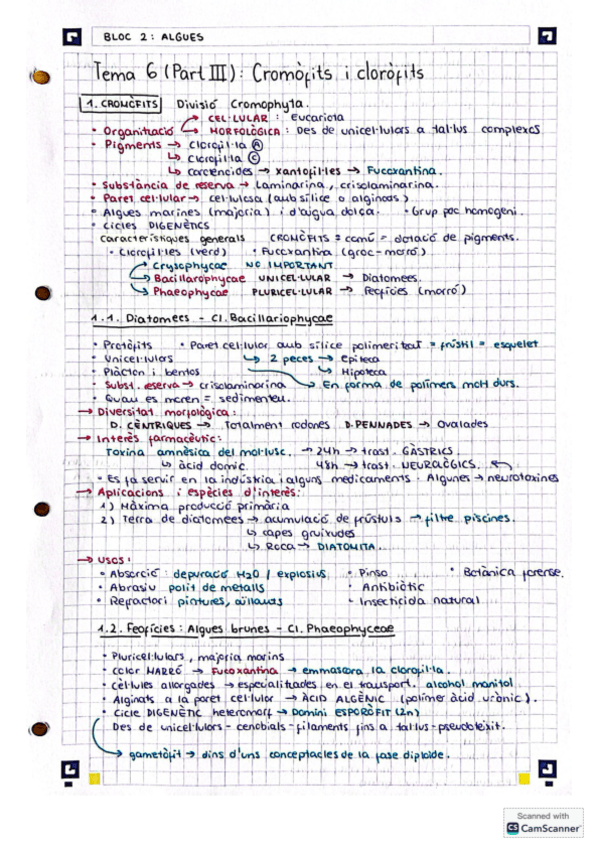 BLOC 2: ALGUES
Tema 6 (Part III): Cromòfits i cloròfits
1. CROMÒFITS Divisió Cromophyta.
CEL·LULAR: Eucariota
• Organització MORFOLÒGICA: Des de unicel·lulars a tal·lus complexes
• Pigments → Clorofil·la A
↳ Clorofil·la C
↳ carotenoides → xantofil·les → Fucoxantina.
• Substància de reserva → Laminarina, crisolaminarina.
• Paret cel·lular → cel·lulosa (amb sílice o alginats)
• Algues marines (majoria) i d'aigua dolça. • Grup poc homogeni.
• Cicles DIGENÈTICS
Característiques generals CROMÒFITS = comú = dotació de pigments.
• Clorofil·les (verd) • Fucoxantina (groc-marró)
Crysophycae NO IMPORTANT
Bacillarophycae UNICEL·LULAR → Diatomees.
Phaeophycae PLURICEL·LULAR → Feofícies (marró)
1.1. Diatomees - Cl. Bacillariophycae
• Protòfits • Paret cel·lular amb sílice polimeritzat = frústul = esquelet
• Unicel·lulars ↳ 2 peces → Epiteca
• Plàcton i bentos ↳ Hipoteca
• Subst. reserva → crisolaminarina → En forma de polímers molt durs.
• Quan es moren = sedimenten.
→ Diversitat morfològica:
D. CÈNTRIQUES → Totalment rodones D. PENNADES → Ovalades
→ Interès farmacèutic:
Toxina amnèsica del mol·lusc. → 24h → trast. GÀSTRICS
↳ àcid domic 48h → trast. NEUROLÒGICS.
• Es fa servir en la indústria i alguns medicaments. Algunes → neurotoxines
→ Aplicacions i espècies d'interès:
1) Màxima producció primària
2) Terra de diatomees → acumulació de frústuls → filtre piscines.
↳ capes gruixudes
↳ Roca → DIATOMITA.
→ Usos:
• Absorció: depuració H2O / explosius • Pinso • Botànica forense.
• Abrasiu polit de metalls • Antibiòtic
• Refractori pintures, aïllants • Insecticida natural
1.2. Feofícies: Algues brunes - Cl. Phaeophyceae
• Pluricel·lulars, majoria marins
• Color MARRÓ → Fucoxantina → emmascara la clorofil·la.
• Cèl·lules allargades → especialitzades en el transport. alcohol manitol
• Alginats a la paret cel·lular → ÀCID ALGÈNIC (polímer àcid urònic).
• Cicle DIGENÈTIC heteromorf → Domini ESPORÒFIT (2n)
Des de unicel·lulars - cenobials - filaments fins a tal·lus-pseudoteixit.
gametòfit → dins d'uns conceptacles de la fase diploide.
Scanned with
CS CamScanner